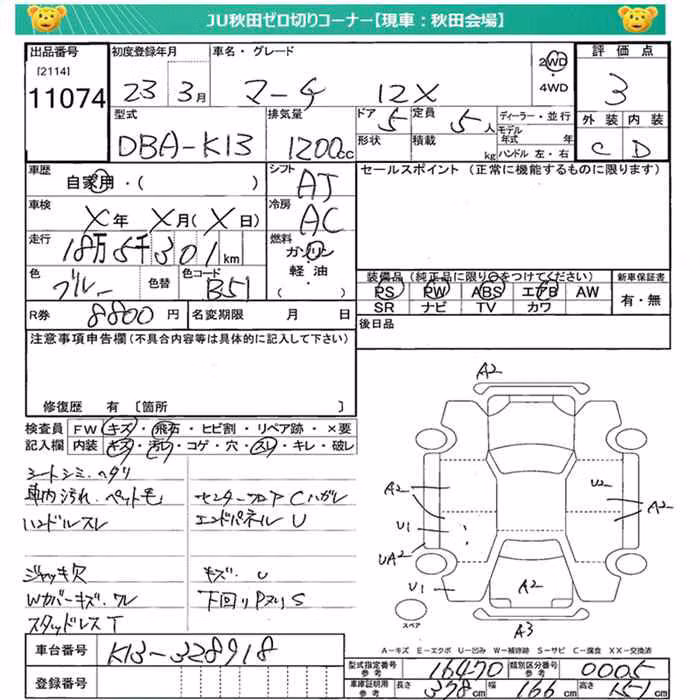 JU秋田ゼロ切りコーナー【現車：秋田会場】
出品番号 [2114] 11074
初度登録年月 23 3月
車名・グレード マーチ 12X
2WD ・ 4WD
評価点 3
外装 C 内装 D
型式 DBA-K13
排気量 1200cc
ドア 5 形状
定員 5人 積載 kg
ディーラー・並行
モデル年式 年
ハンドル 左・右
車歴 自家用・( )
シフト AT
セールスポイント (正常に機能するものに限ります)
車検 X年 X月(X日)
冷房 AC
走行 18万5千301km
燃料 ガソリン・軽油 ( )
色 ブルー 色替 色コード B51
装備品 (純正品に限り○をつけてください)
PS PW ABS エアB AW
SR ナビ TV カワ
新車保証書 有・無
R券 8800円 名変期限 月 日
後日品
注意事項申告欄(不具合内容等は具体的に記入して下さい)
修復歴 有 〔箇所 〕
検査員記入欄
FW キズ・飛石・ヒビ割・リペア跡・×要
内装 キズ・汚レ・コゲ・穴・スレ・キレ・破レ
シートシミ・ヘタリ
車内汚れ・ペット毛 センターフロア Cハガレ
ハンドルスレ エンドパネル U
ジャッキ欠 キズ・U
Wカバーキズ・ワレ 下回りPヌリS
スタッドレスT
A2
A2 U2 A2
U1
UA2
U1 A2
スペア A3
A-キズ E-エクボ U-凹み W-補修跡 S-サビ C-腐食 XX-交換済
車台番号 K13-328918
登録番号
型式指定番号 参考 16470 類別区分番号 参考 0005
車庫証明用 参考 長さ 378cm 幅 166cm 高さ 151cm